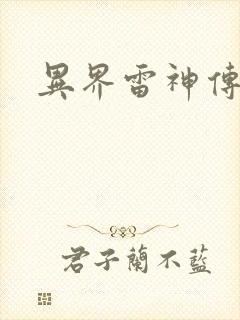 異界雷神傳
君子蘭不藍